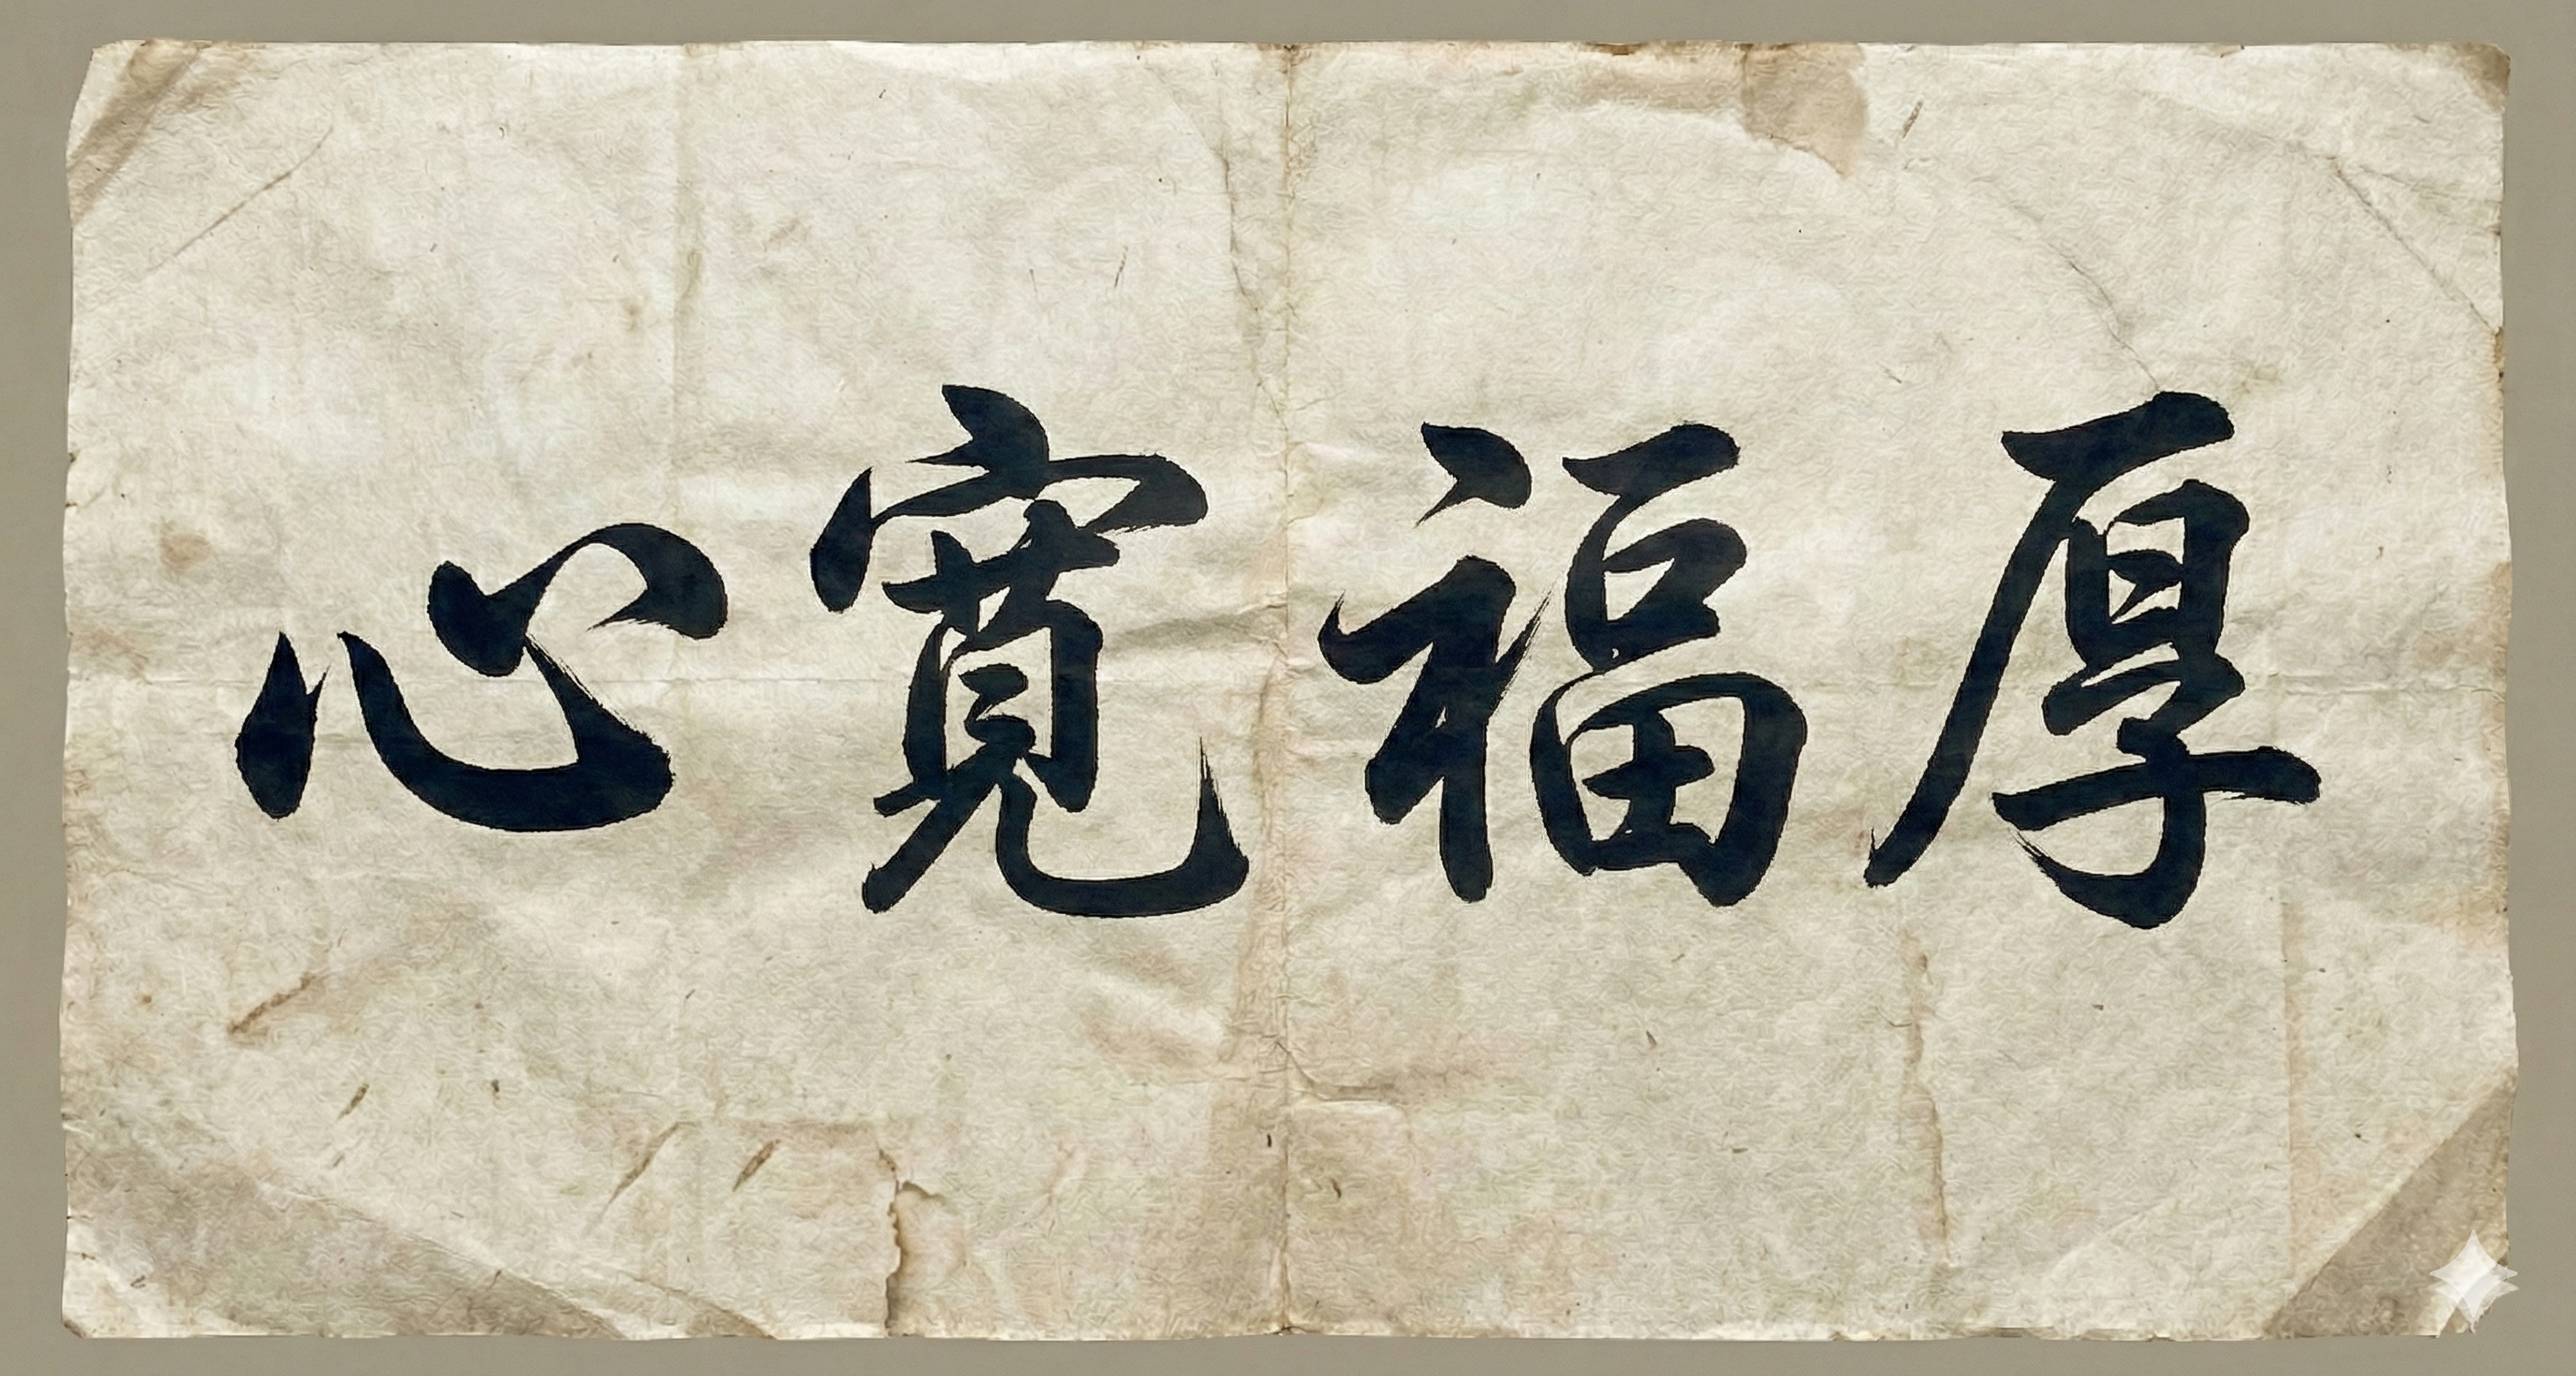 心寬福厚